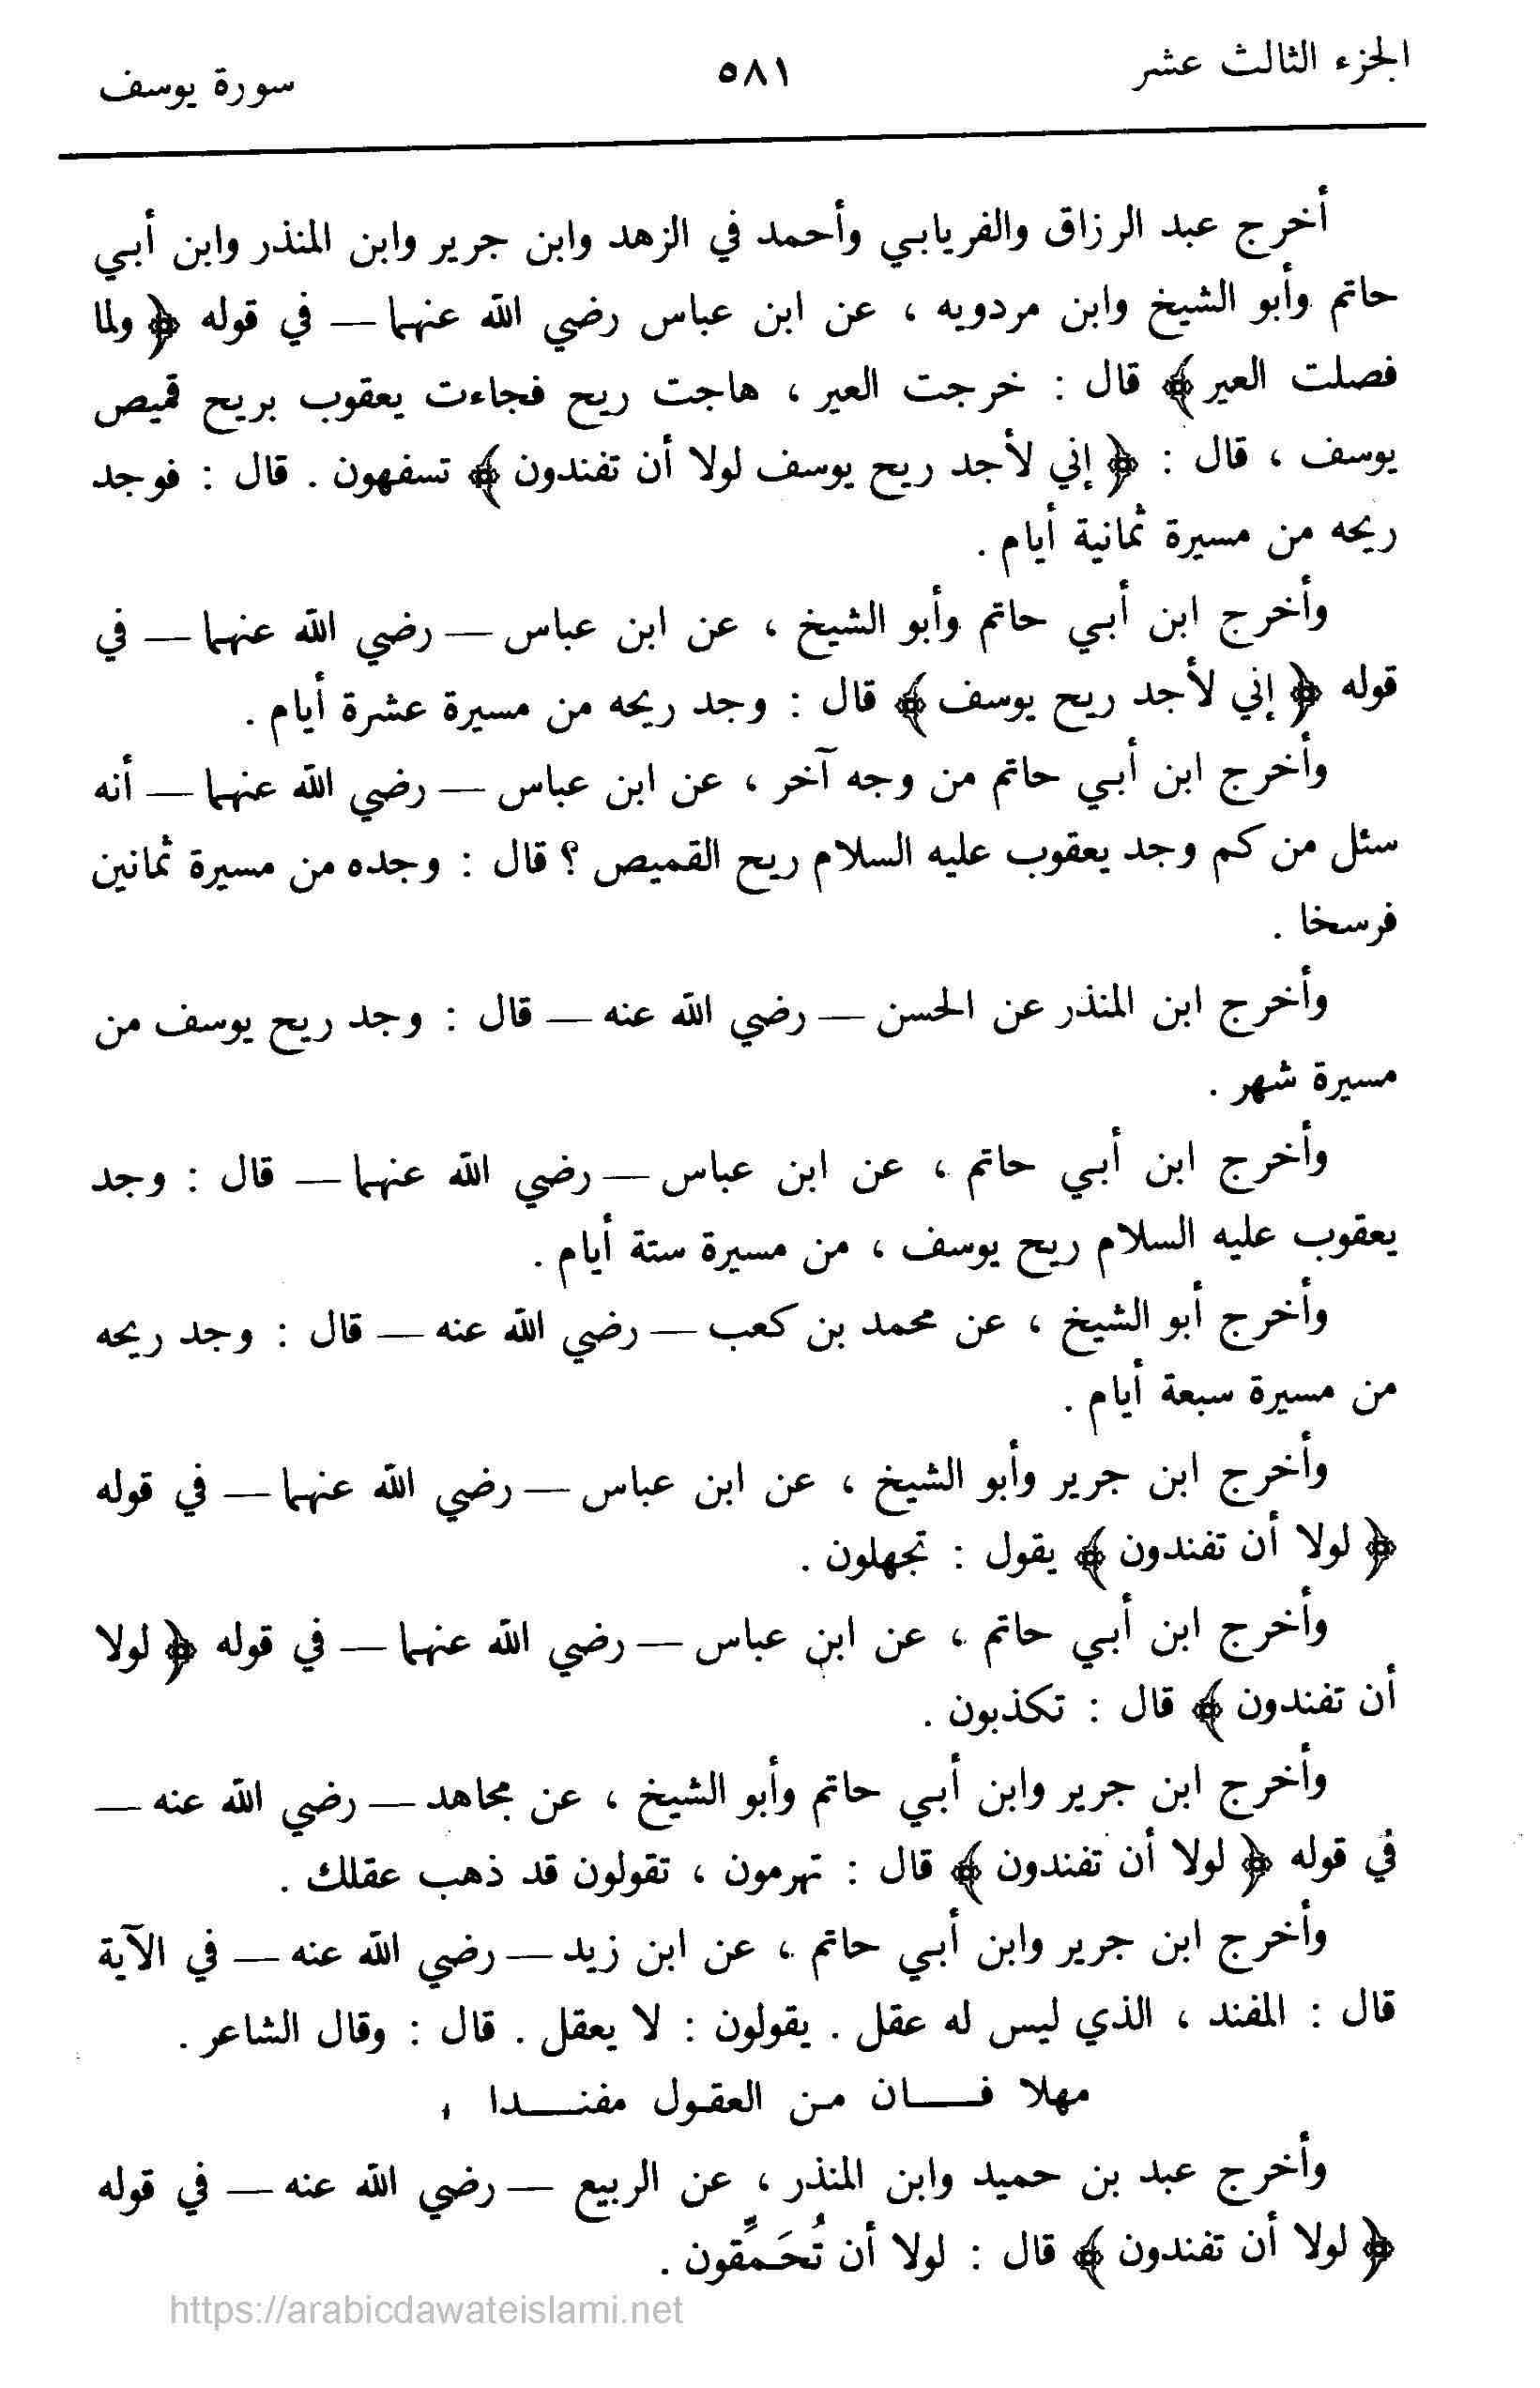 الجزء الثالث عشر ٥٨١ سورة يوسف
أخرج عبد الرزاق والفريابي وأحمد في الزهد وابن جرير وابن المنذر وابن أبي
حاتم وأبو الشيخ وابن مردويه ، عن ابن عباس رضي الله عنهما — في قوله ﴿ ولما
فصلت العير ﴾ قال : خرجت العير ، هاجت ريح فجاءت يعقوب بريح قميص
يوسف ، قال : ﴿ إني لأجد ريح يوسف لولا أن تفندون ﴾ تسفهون . قال : فوجد
ريحه من مسيرة ثمانية أيام .
وأخرج ابن أبي حاتم وأبو الشيخ ، عن ابن عباس — رضي الله عنهما — في
قوله ﴿ إني لأجد ريح يوسف ﴾ قال : وجد ريحه من مسيرة عشرة أيام .
وأخرج ابن أبي حاتم من وجه آخر ، عن ابن عباس — رضي الله عنهما — أنه
سئل من كم وجد يعقوب عليه السلام ريح القميص ؟ قال : وجده من مسيرة ثمانين
فرسخا .
وأخرج ابن المنذر عن الحسن — رضي الله عنه — قال : وجد ريح يوسف من
مسيرة شهر .
وأخرج ابن أبي حاتم ، عن ابن عباس — رضي الله عنهما — قال : وجد
يعقوب عليه السلام ريح يوسف ، من مسيرة ستة أيام .
وأخرج أبو الشيخ ، عن محمد بن كعب — رضي الله عنه — قال : وجد ريحه
من مسيرة سبعة أيام .
وأخرج ابن جرير وأبو الشيخ ، عن ابن عباس — رضي الله عنهما — في قوله
﴿ لولا أن تفندون ﴾ يقول : تجهلون .
وأخرج ابن أبي حاتم ، عن ابن عباس — رضي الله عنهما — في قوله ﴿ لولا
أن تفندون ﴾ قال : تكذبون .
وأخرج ابن جرير وابن أبي حاتم وأبو الشيخ ، عن مجاهد — رضي الله عنه —
في قوله ﴿ لولا أن تفندون ﴾ قال : تهرمون ، تقولون قد ذهب عقلك .
وأخرج ابن جرير وابن أبي حاتم ، عن ابن زيد — رضي الله عنه — في الآية
قال : المفند ، الذي ليس له عقل . يقولون : لا يعقل . قال : وقال الشاعر .
مهلا فـــان من العقول مفنـــدا ،
وأخرج عبد بن حميد وابن المنذر ، عن الربيع — رضي الله عنه — في قوله
﴿ لولا أن تفندون ﴾ قال : لولا أن تُحَمِّقون .
https://arabicdawateislami.net